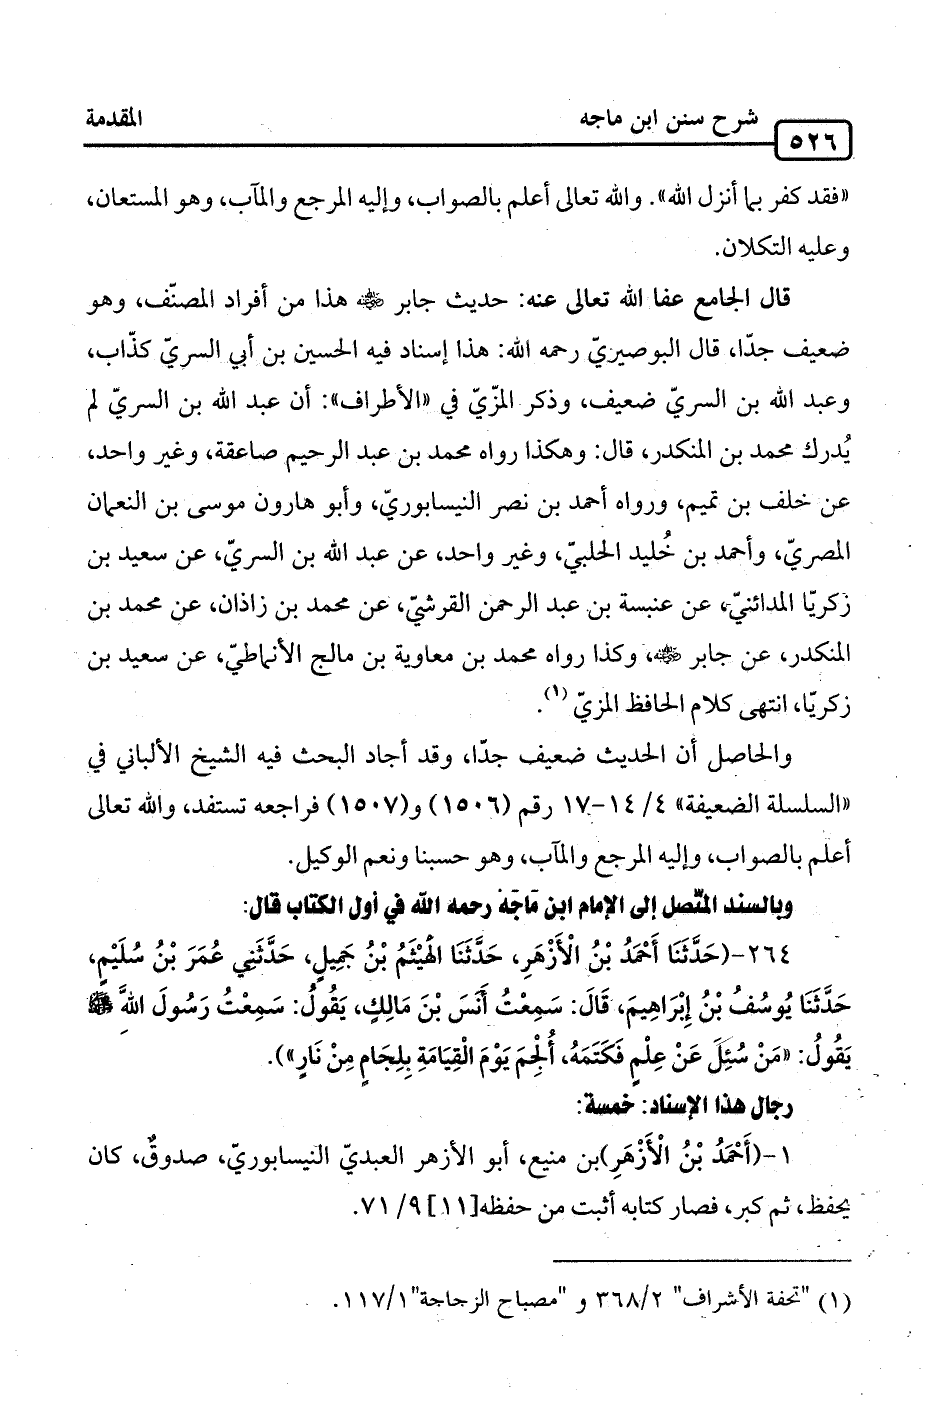 شرح سنن ابن ماجه
المقدمة
٥٢٦
«فقد كفر بما أنزل الله». والله تعالى أعلم بالصواب، وإليه المرجع والمآب، وهو المستعان،
وعليه التكلان.
قال الجامع عفا الله تعالى عنه: حديث جابر ﷺ هذا من أفراد المصنّف، وهو
ضعيف جدّا، قال البوصيريّ رحمه الله: هذا إسناد فيه الحسين بن أبي السريّ كذّاب،
وعبد الله بن السريّ ضعيف، وذكر المزّيّ في «الأطراف»: أن عبد الله بن السريّ لم
يُدرك محمد بن المنكدر، قال: وهكذا رواه محمد بن عبد الرحيم صاعقة، وغير واحد،
عن خلف بن تميم، ورواه أحمد بن نصر النيسابوريّ، وأبو هارون موسى بن النعمان
المصريّ، وأحمد بن خُليد الحلبيّ، وغير واحد، عن عبد الله بن السريّ، عن سعيد بن
زكريّا المدائنيّ، عن عنبسة بن عبد الرحمن القرشيّ، عن محمد بن زاذان، عن محمد بن
المنكدر، عن جابر ﷺ، وكذا رواه محمد بن معاوية بن مالج الأنماطيّ، عن سعيد بن
زكريّا، انتهى كلام الحافظ المزيّ (١).
والحاصل أن الحديث ضعيف جدّا، وقد أجاد البحث فيه الشيخ الألباني في
«السلسلة الضعيفة» ٤/ ١٤-١٧ رقم (١٥٠٦) و(١٥٠٧) فراجعه تستفد، والله تعالى
أعلم بالصواب، وإليه المرجع والمآب، وهو حسبنا ونعم الوكيل.
وبالسند المتّصل إلى الإمام ابن مَاجَهْ رحمه الله في أول الكتاب قال:
٢٦٤-(حَدَّثَنَا أَحْمَدُ بْنُ الْأَزْهَرِ، حَدَّثَنَا الْهَيْثَمُ بْنُ جَمِيلٍ، حَدَّثَنِي عُمَرَ بْنُ سُلَيْمٍ،
حَدَّثَنَا يُوسُفُ بْنُ إِبْرَاهِيمَ، قَالَ: سَمِعْتُ أَنَسَ بْنَ مَالِكٍ، يَقُولُ: سَمِعْتُ رَسُولَ اللهَِّ ﷺ
يَقُولُ: «مَنْ سُئِلَ عَنْ عِلْمٍ فَكَتَمَهُ، أُلْجِمَ يَوْمَ الْقِيَامَةِ بِلِجَامٍ مِنْ نَارٍ»).
رجال هذا الإسناد: خمسة:
١-(أَحْمَدُ بْنُ الْأَزْهَرِ)بن منيع، أبو الأزهر العبديّ النيسابوريّ، صدوقٌ، كان
يحفظ، ثم كبر، فصار كتابه أثبت من حفظه[١١]٩/ ٧١.
(١) "تحفة الأشراف" ٣٦٨/٢ و "مصباح الزجاجة"١١٧/١.